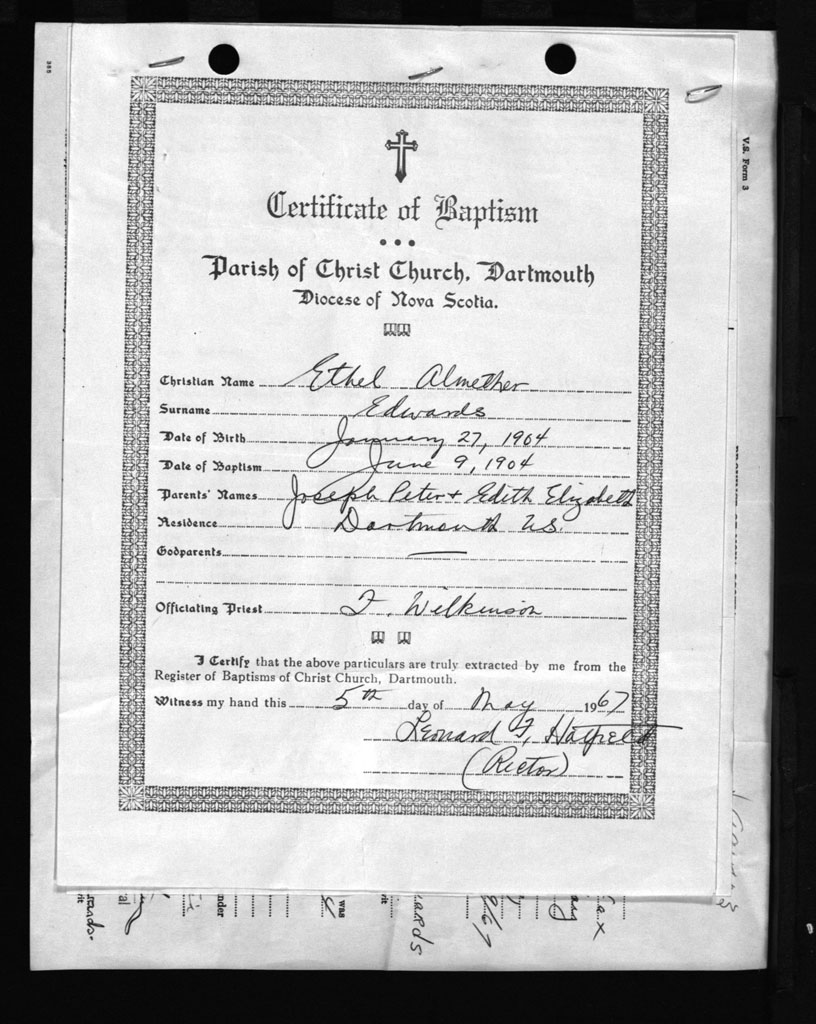 385
V.S. Form 3
Certificate of Baptism
Parish of Christ Church, Dartmouth
Diocese of Nova Scotia.
Christian Name Ethel Almether
Surname Edwards
Date of Birth January 27, 1904
Date of Baptism June 9, 1904
Parents' Names Joseph Peter + Edith Elizabeth
Residence Dartmouth N.S.
Godparents —
Officiating Priest F. Wilkinson
I Certify that the above particulars are truly extracted by me from the
Register of Baptisms of Christ Church, Dartmouth.
Witness my hand this 5th day of May 1967
Leonard F. Hatfield
(Rector)
ards.
rit
ral
nder
was
rit
ards
967
ax